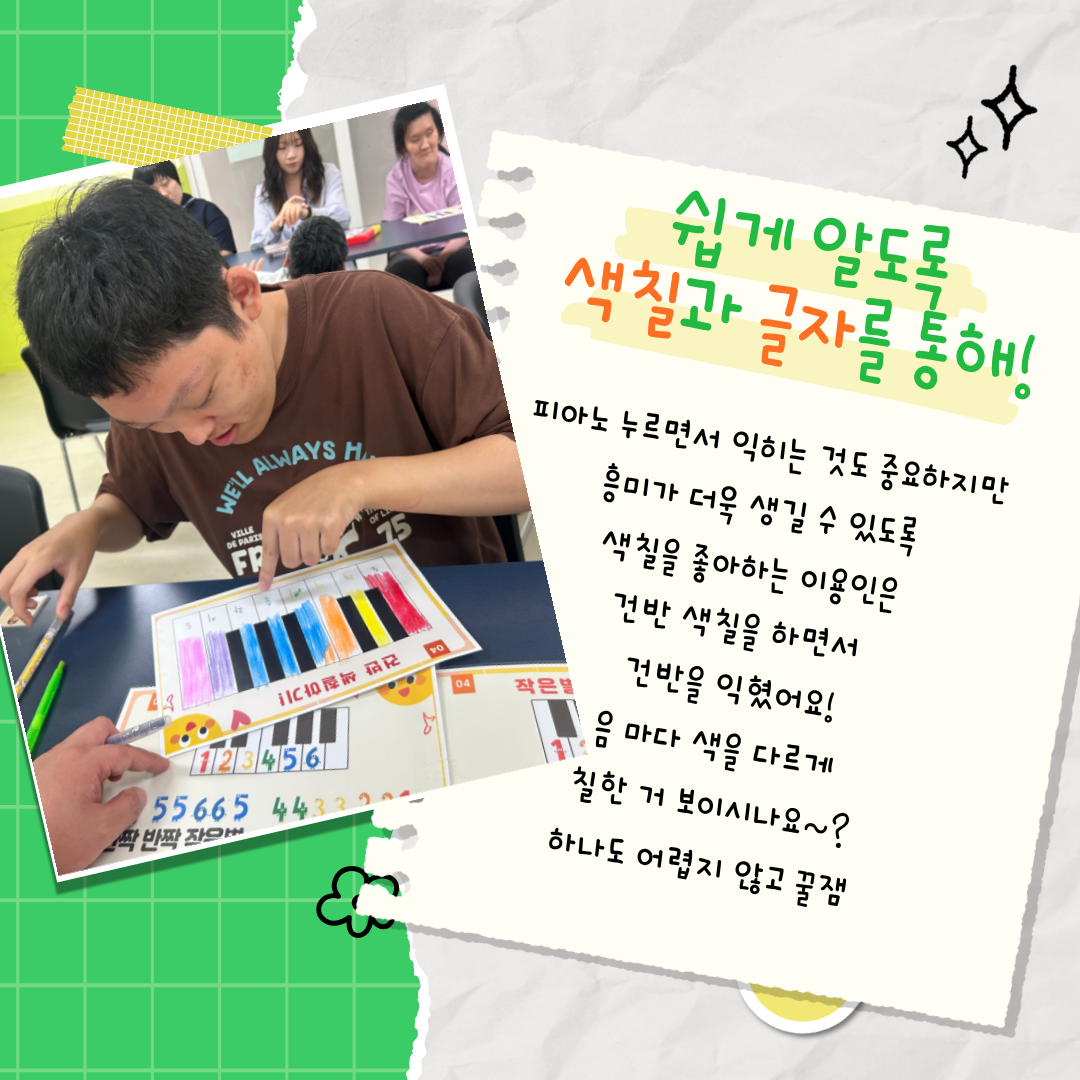 쉽게 알도록
색칠과 글자를 통해!
피아노 누르면서 익히는 것도 중요하지만
흥미가 더욱 생길 수 있도록
색칠을 좋아하는 이용인은
건반 색칠을 하면서
건반을 익혔어요!
음 마다 색을 다르게
칠한 거 보이시나요~?
하나도 어렵지 않고 꿀잼
WE'LL ALWAYS
VILLE
DE PARIS
75
04
건반 색칠하기!
04
작은별
1 2 3 4 5 6
1
5 5 6 6 5 4 4 3 3
반짝 작은별